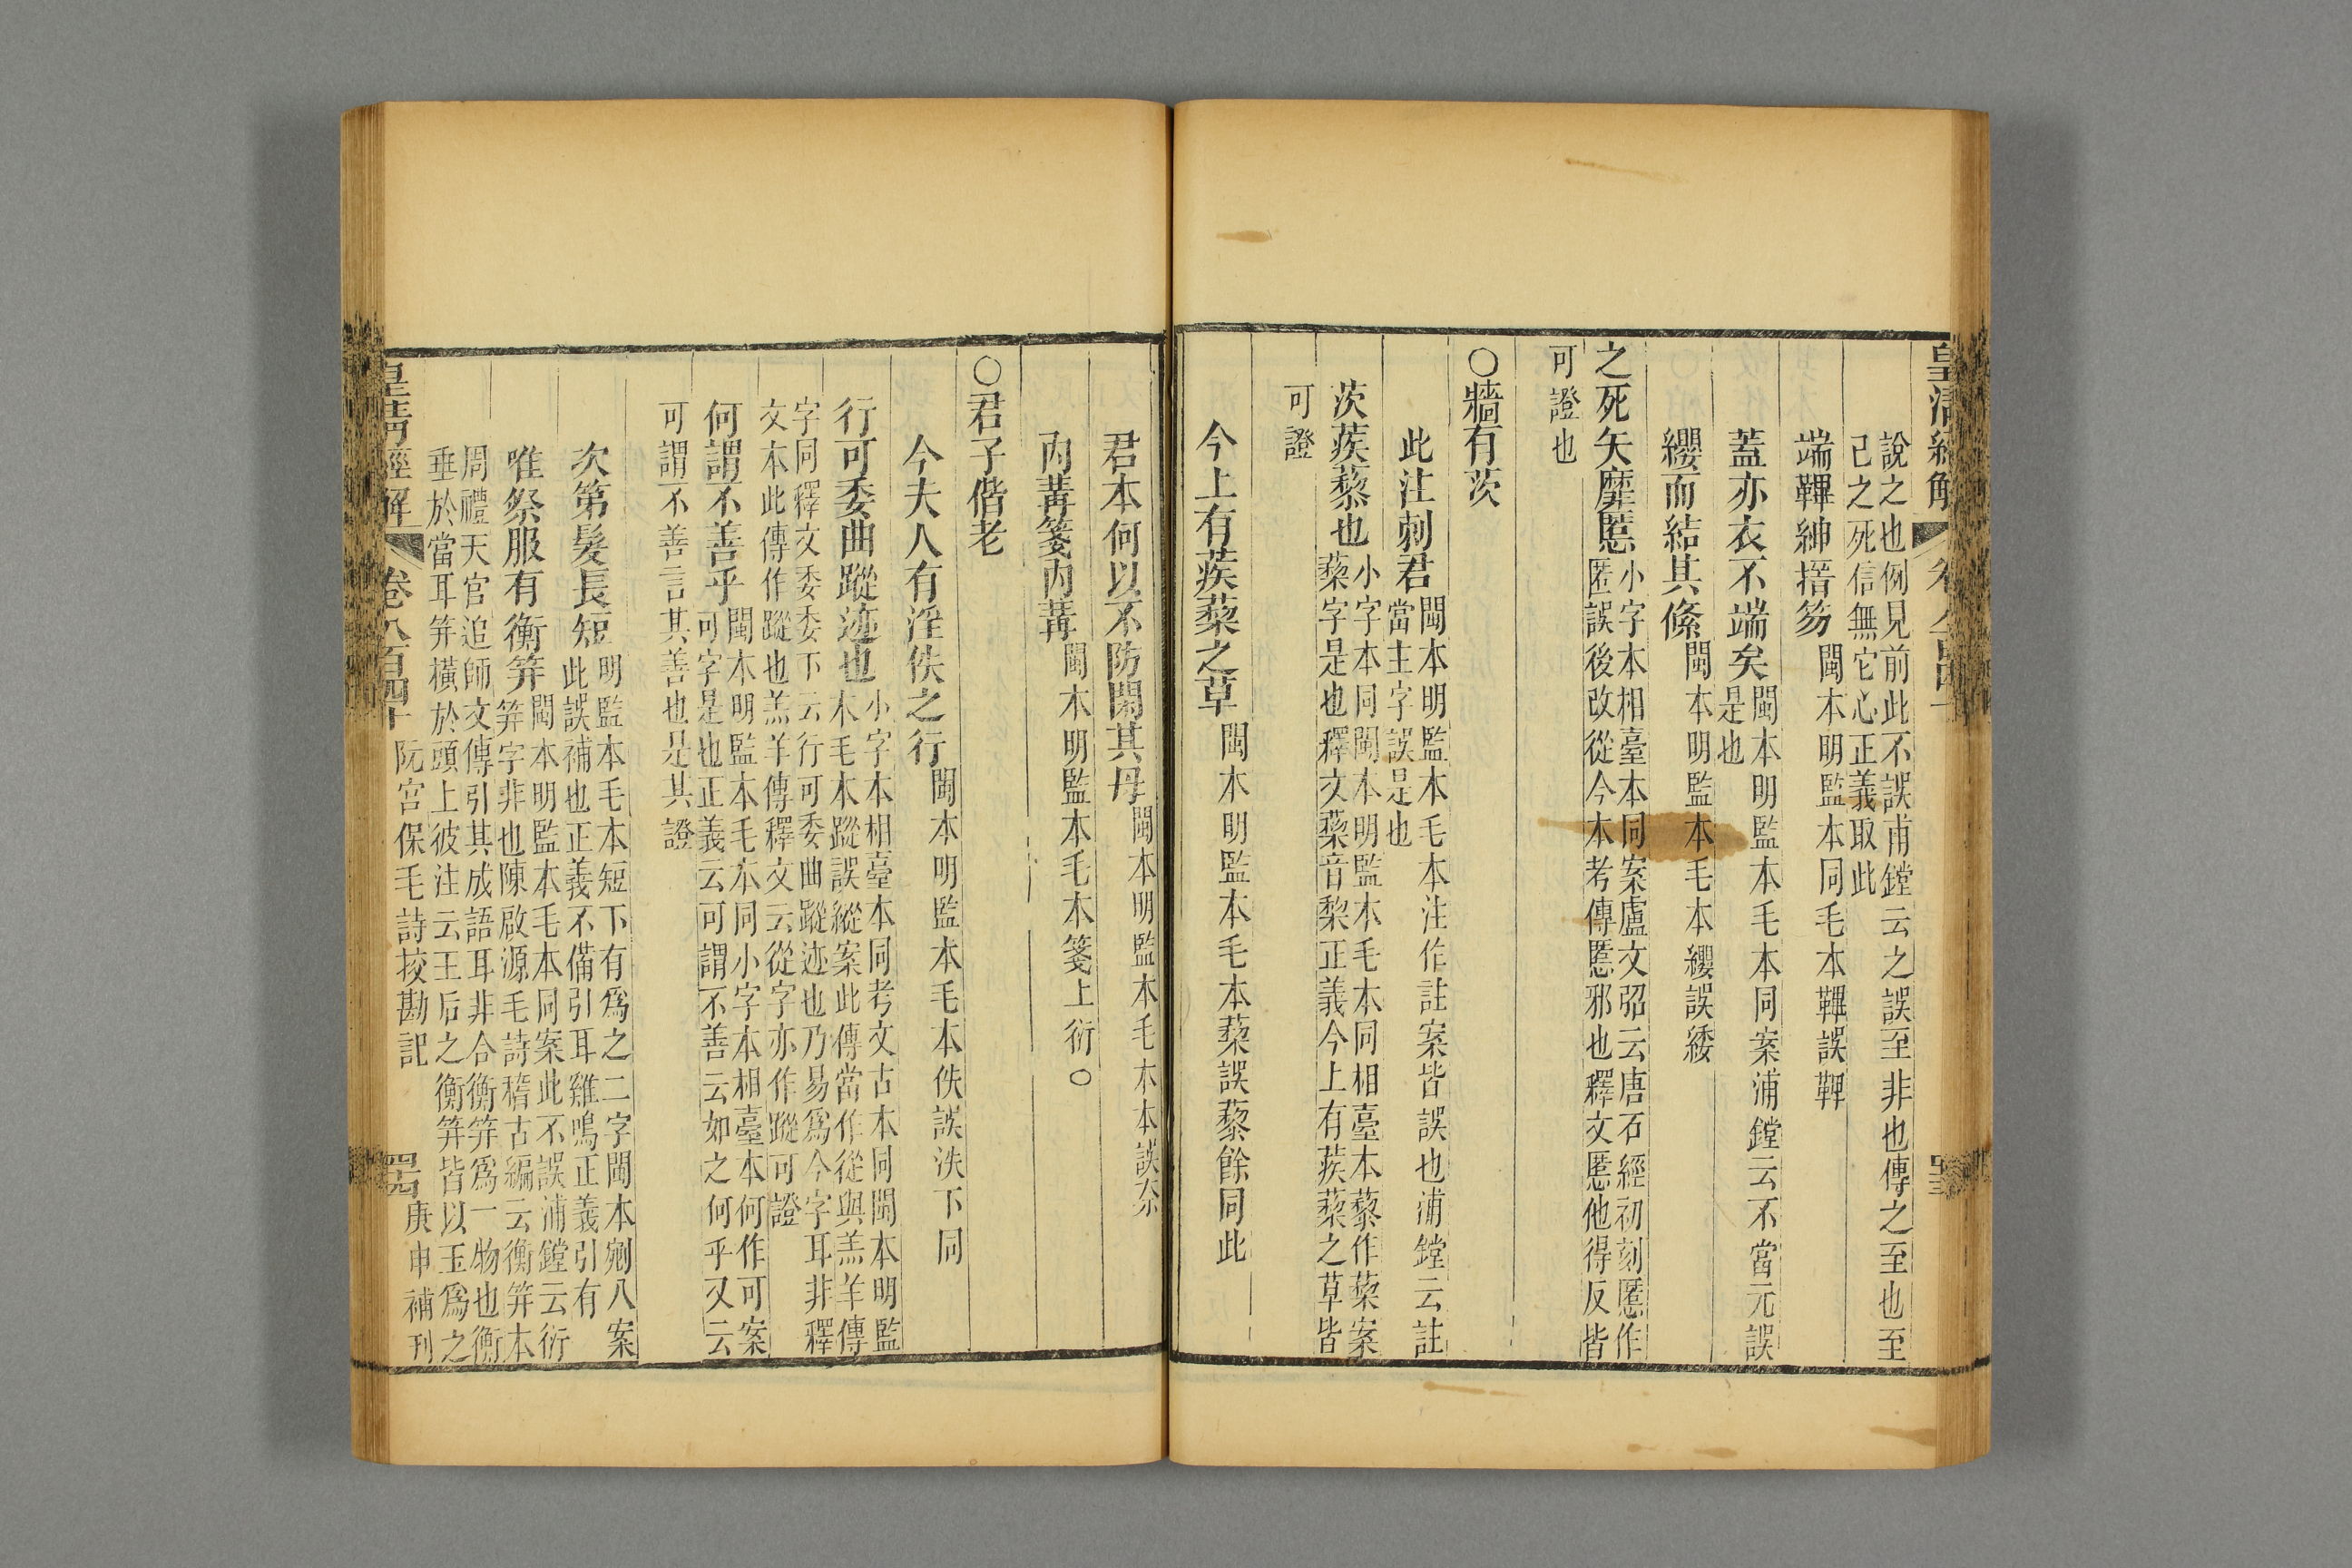 皇清經解
說之也例見前此不誤甫鏜云之誤至非也傳之至也至
己之死信無它心正義取此
端鞸紳搢笏閩本明監本同毛本鞸誤鞞
蓋亦衣不端矣閩本明監本毛本同案浦鏜云不當元誤
是也
纓而結其絛閩本明監本毛本纓誤緌
之死矢靡慝小字本相臺本同案盧文弨云唐石經初刻慝作
匿誤後改從今本考傳慝邪也釋文慝他得反皆
可證也
○牆有茨
此注刺君閩本明監本毛本注作註案皆誤也浦鏜云註
當主字誤是也
茨蒺藜也小字本同閩本明監本毛本同相臺本藜作蔾案
蔾字是也釋文蔾音犁正義今上有蒺蔾之草皆
可證
今上有蒺蔾之草閩本明監本毛本蔾誤藜餘同此
君本何以不防閑其母閩本明監本毛本本誤奈
內冓箋內冓閩本明監本毛本箋上衍○
○君子偕老
今夫人有淫佚之行閩本明監本毛本佚誤泆下同
行可委曲蹤迹也小字本相臺本同考文古本同閩本明監
本毛本蹤誤縱案此傳當作從與羔羊傳
字同釋文委委下云行可委曲蹤迹也乃易爲今字耳非釋
文本此傳作蹤也羔羊傳釋文云從字亦作蹤可證
何謂不善乎閩本明監本毛本同小字本相臺本何作可案
可字是也正義云可謂不善云如之何乎又云
可謂不善言其善也是其證
次第髮長短明監本毛本短下有爲之二字閩本剜入案
此誤補也正義不備引耳雞鳴正義引有
唯祭服有衡筓閩本明監本毛本同案此不誤浦鏜云衍
筓字非也陳啟源毛詩稽古編云衡筓本
周禮天官追師文傳引其成語耳非合衡筓爲一物也衡
垂於當耳筓橫於頭上彼注云王后之衡筓皆以玉爲之
皇清經解 卷八百四十 阮宮保毛詩挍勘記 四 庚申補刊